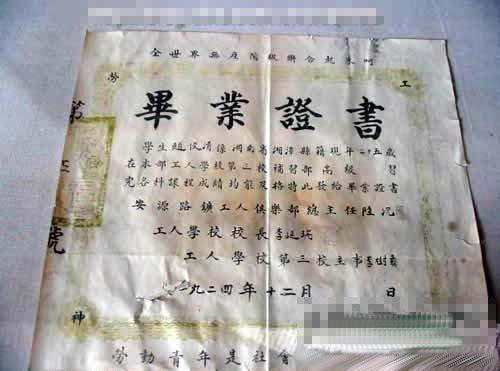 全世界無產階級聯合起來呵
工
勞
畢業證書
學生趙汶清係湖南省湘潭縣籍現年二十五歲
在本部工人學校第三校補習部高級 習
完各科課程成績均能及格特此發給畢業證書
安源路鑛工人俱樂部總主任陸沉
工人學校校長李延瑞
工人學校第三校主事李
一九二四年十二月 日
第 號
神
勞動青年是社會